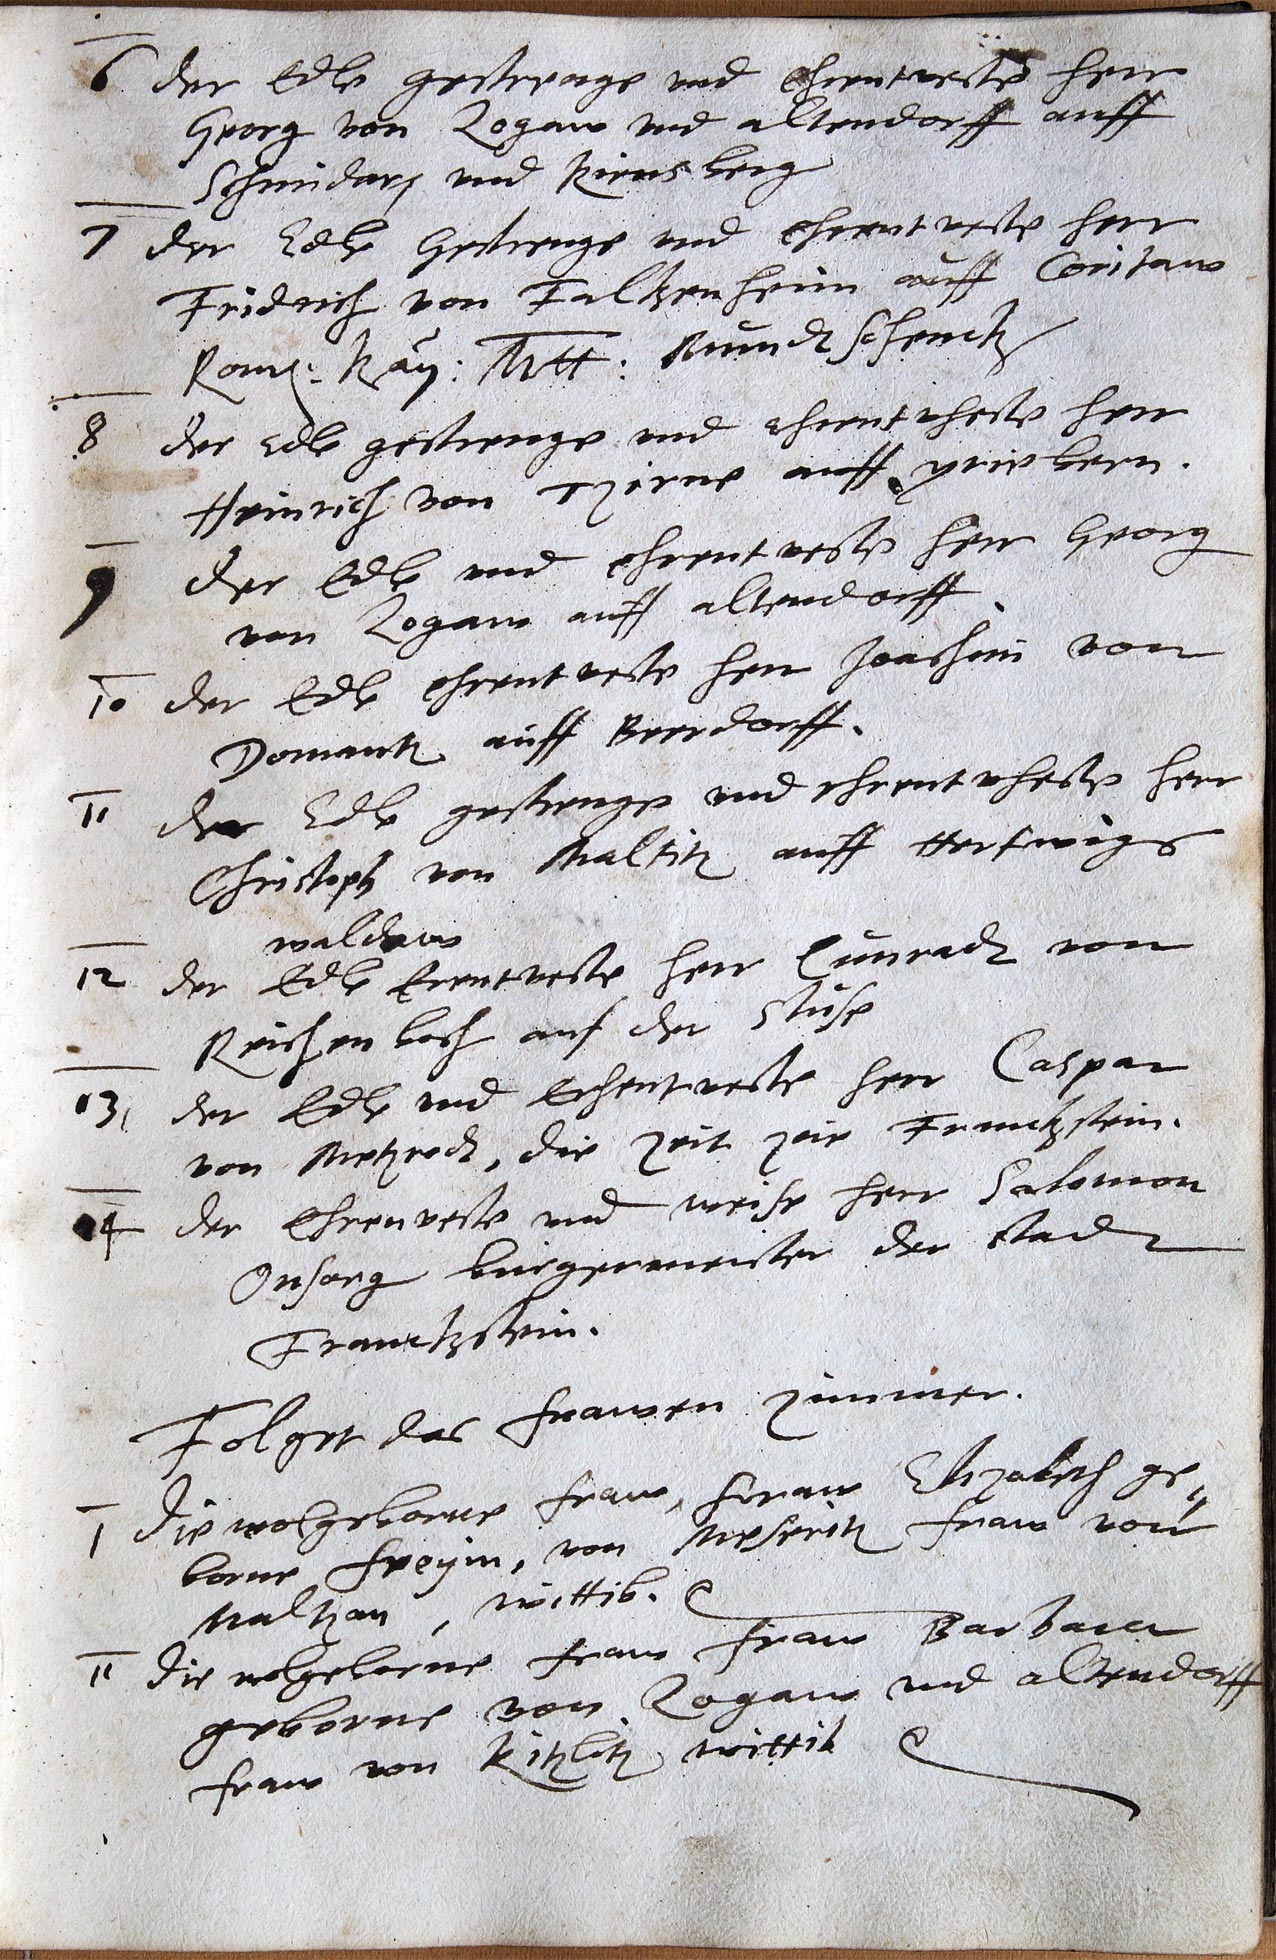 6 der Edle gestrenge und Ehrentveste herr
Georg von Logaw und altendorff auff
Schnidarz und Kinsberg
7 der Edle Gestrenge und Ehrentveste herr
Fridrich von Falkenheim auff Coritaw
Röm: Kay: Mtt: Mundtschenck
8 der Edle gestrenge und Ehrentvheste herr
Heinrich von Tzirne auff priebern.
9 der Edle und Ehrentveste herr Georg
von Logaw auff altendorff.
10 der Edle Ehrentveste herr Joachim von
Domantz auff Beerdorff.
11 der Edle gestrenge und ehrentvheste herr
Christoph von Maltitz auff Hertwigs
waldaw
12 der Edle Erentveste herr Cunradt von
Reichenbach auf der Stuse
13 der Edle und Erhentveste herr Caspar
von Metzrodt, die zeit zue Franckstein.
14 der Ehrenveste und weise herr Salomon
Onsorg bürgermeister der Stadt
Franckstein.
Folget das frawen zimmer.
1 Die wolgeborne fraw, fraw Elizabeth ge„
borne freyin, von Meseritz fraw von
Maltzan, wittib.
11 die wolgeborne fraw fraw Barbara
geborne von Logaw und altendorff
fraw von Kitzlitz wittib